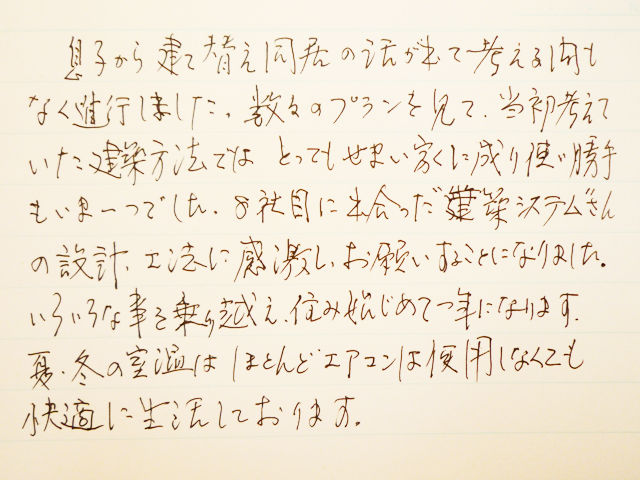 息子から建て替え同居の話が出て考える間も
なく進行しました。数々のプランを見て、当初考えて
いた建築方法では とってもせまい家に成り使い勝手
もいま一つでした。8社目に出会った建築システムさん
の設計、工法に感激し、お願いすることになりました。
いろいろな事を乗り越え、住み始じめて一年になります。
夏・冬の室温は ほとんどエアコンは使用しなくても
快適に生活しております。